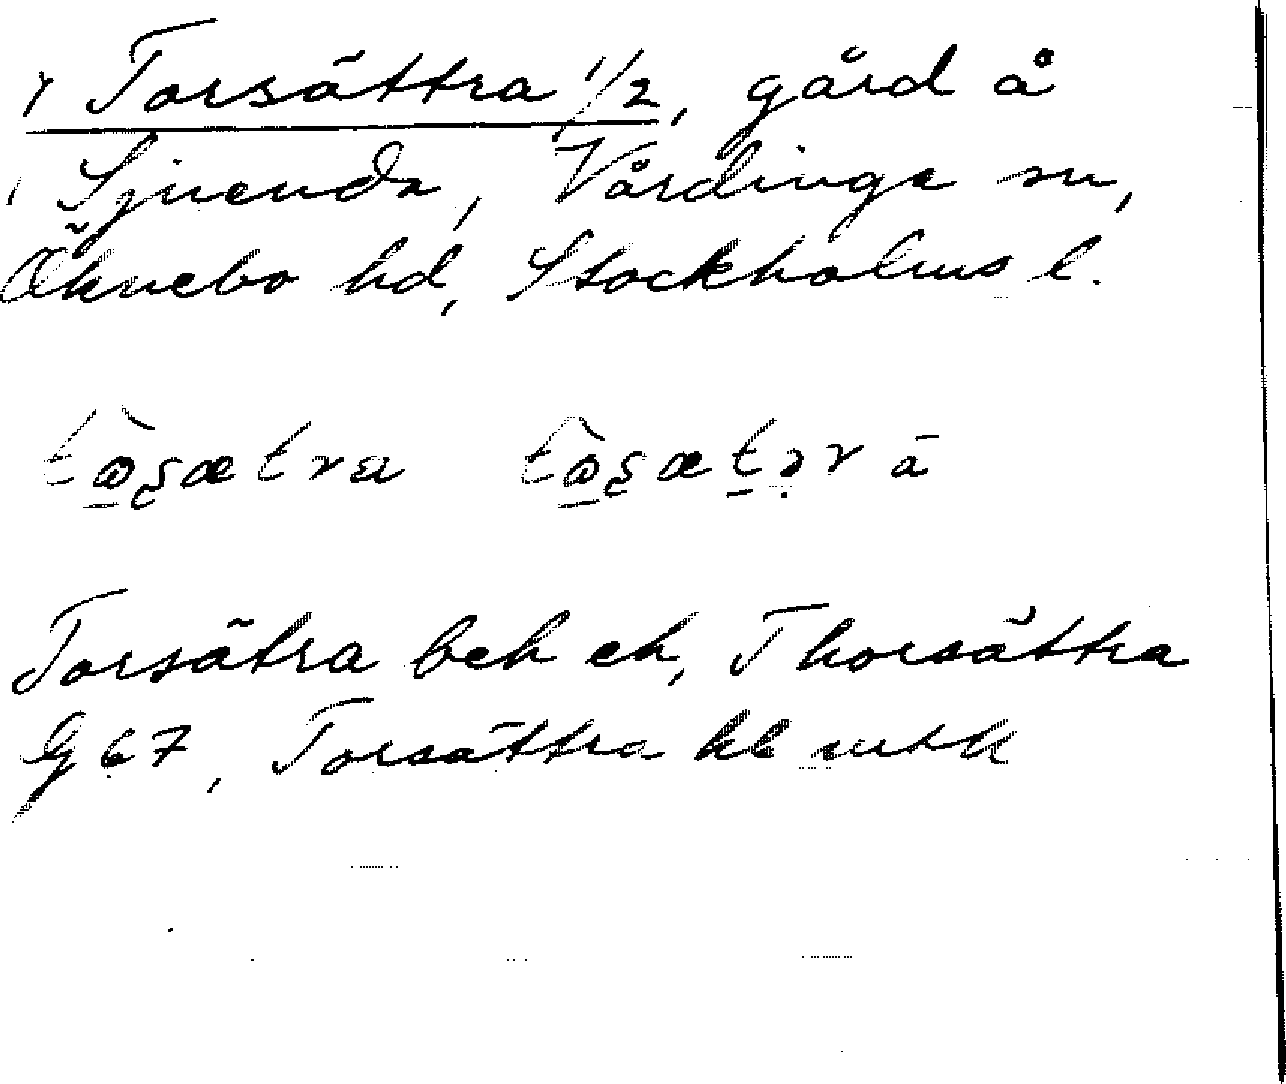 Torsättra 1/2, gård å
Sjuenda, Vårdinge sn,
Öknebo hd, Stockholms l.
Torsätra beh eh, Thorsättra
G 67, Torsättra hl